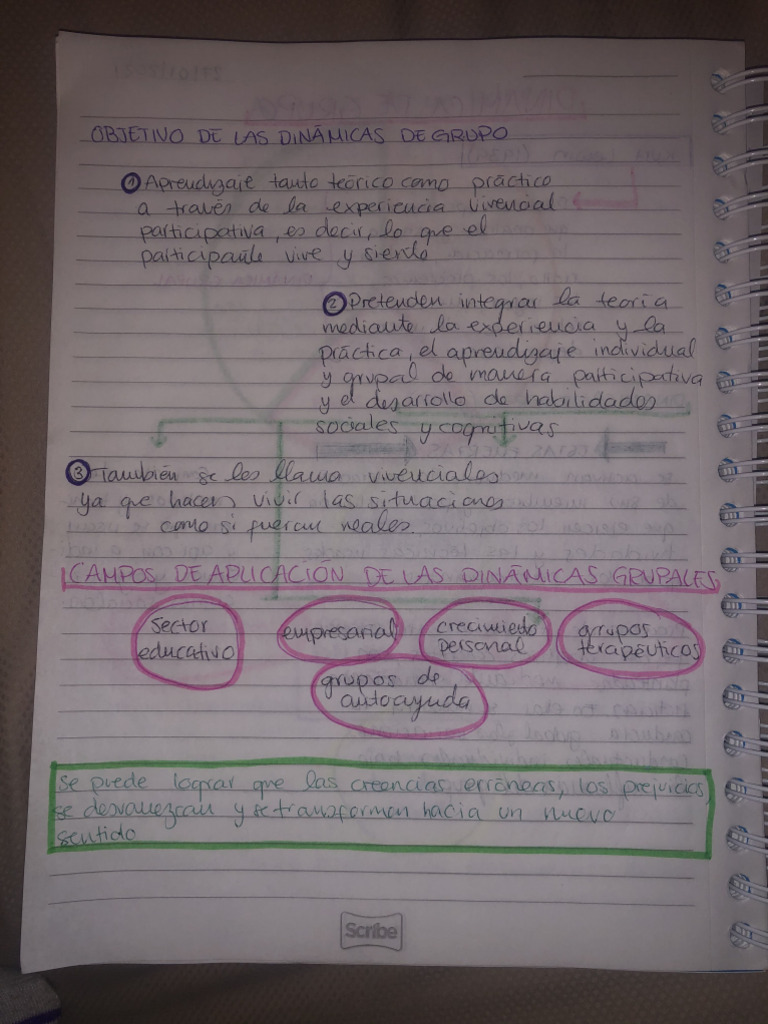 OBJETIVO DE LAS DINÁMICAS DE GRUPO
① Aprendizaje tanto teórico como práctico
a través de la experiencia vivencial
participativa, es decir, lo que el
participante vive y siente
② Pretenden integrar la teoria
mediante la experiencia y la
práctica, el aprendizaje individual
y grupal de manera participativa
y el desarrollo de habilidades
sociales y cognitivas
③ También se les llama vivenciales
ya que hacen vivir las situaciones
como si fueran reales.
CAMPOS DE APLICACIÓN DE LAS DINÁMICAS GRUPALES
sector
educativo
empresarial
crecimiedo
personal
grupos
terapéuticos
grupos de
autoayuda
se puede lograr que las creencias erróneas, los prejuicios,
se desvanezcan y se transformen hacia un nuevo
sentido
Scribe